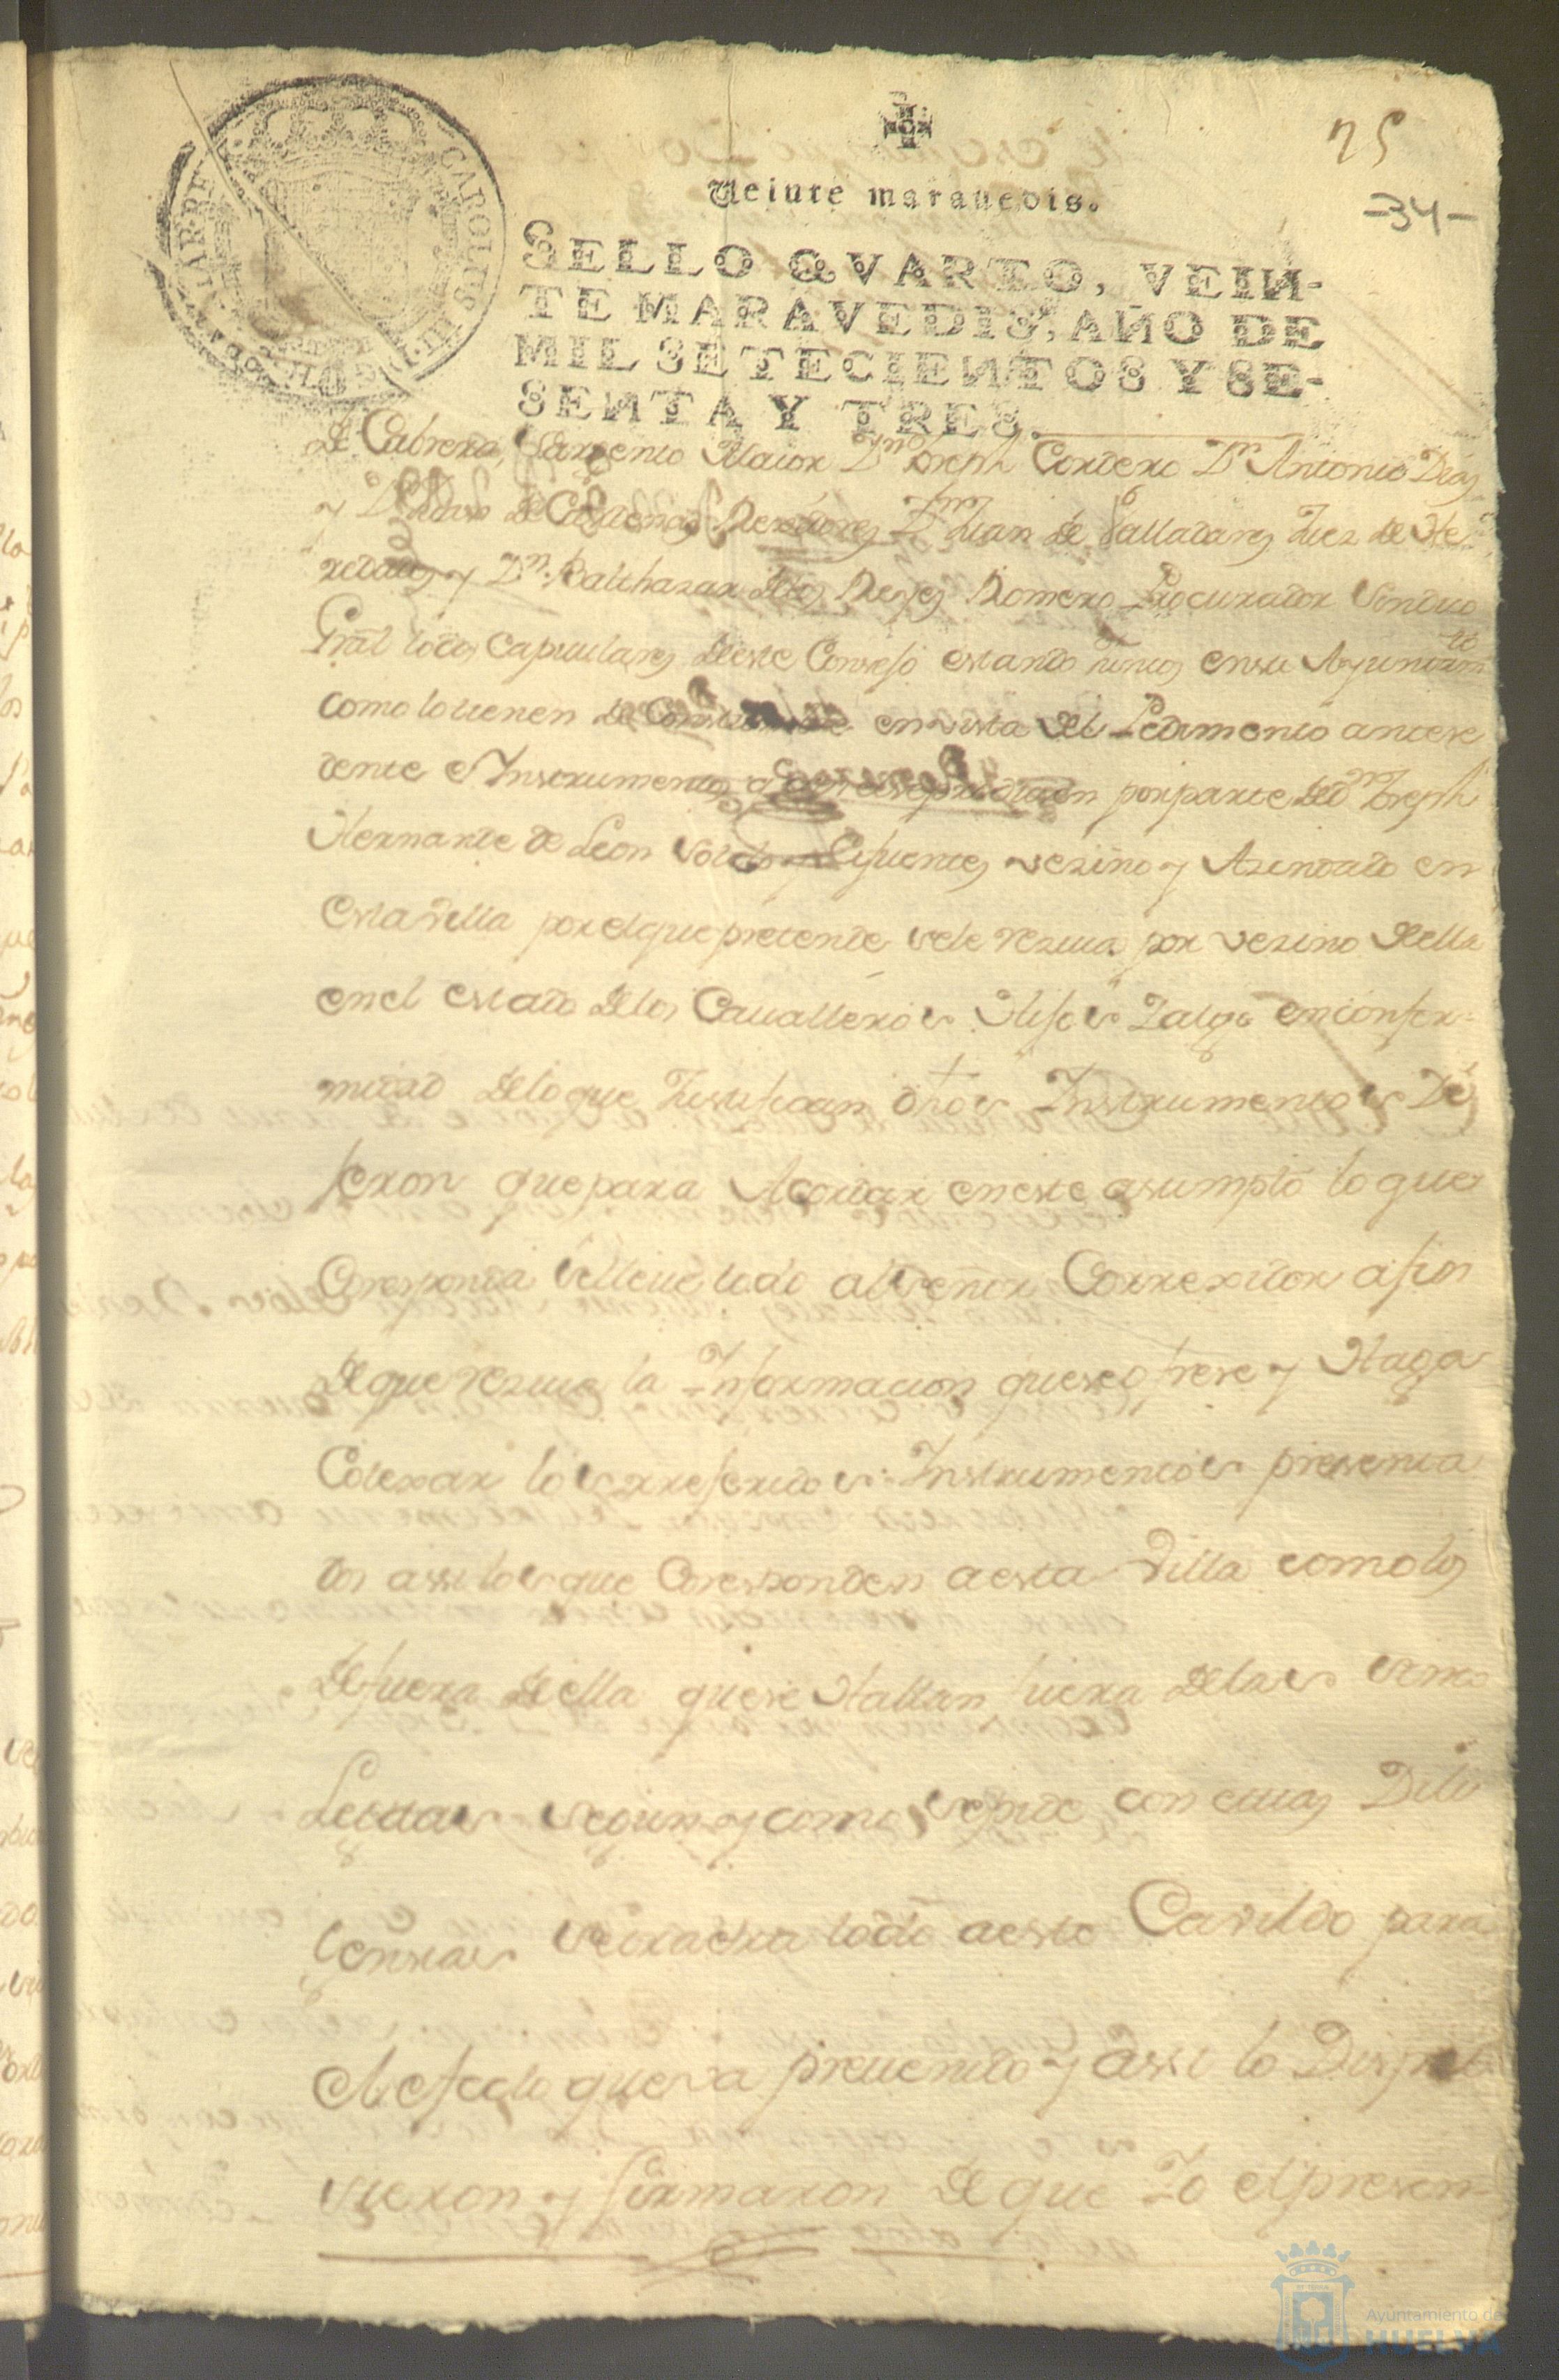 25
-34-
Veinte marauedis.
SELLO QVARTO, VEIN-
TE MARAVEDIS, AÑO DE
MIL SETECIENTOS Y SE-
SENTA Y TRES.
CAROLUS III
de Cabrera, Sargento Maior Dn Joseph Cordero Dn Antonio Dias
y Dn de Cardenas Rexidores Dn Juan de Valladares Juez de He
redades y Dn Balthazar de los Reyes Romero Procurador Sindico
Gral todos Capitulares deeste Consejo estando juntos ensu Ayuntamto
como lotienen de Costumbre en vista del Pedimento antese
dente e Instrumentos por parte de Dn Joseph
Hernande de Leon Sotelo y Sifuentes vezino y Azendado en
esta villa por elque pretende sele reziua por vezino della
enel estado delos Caualleros Hijos Dalgo enconfor-
midad delo que Justifican dhos Instrumentos De
seron que para Acordar eneste asumpto lo que
Coresponda selleue todo alseñor Correxidor afin
de que reziua la Informacion queseofrese y Haga
Cotexar los referidos Instrumentos presenta
dos assi los que Coresponden aesta Villa como los
defuera de ella que se Hallan fuera delas sinco
Leguas segun y como sepide con cuias Dili
gensias setraera todo aeste Cavildo para
el efecto que va preuenido y assi lo Dispu
sieron y firmaron de que Yo el presen-
Ayuntamiento de
HUELVA